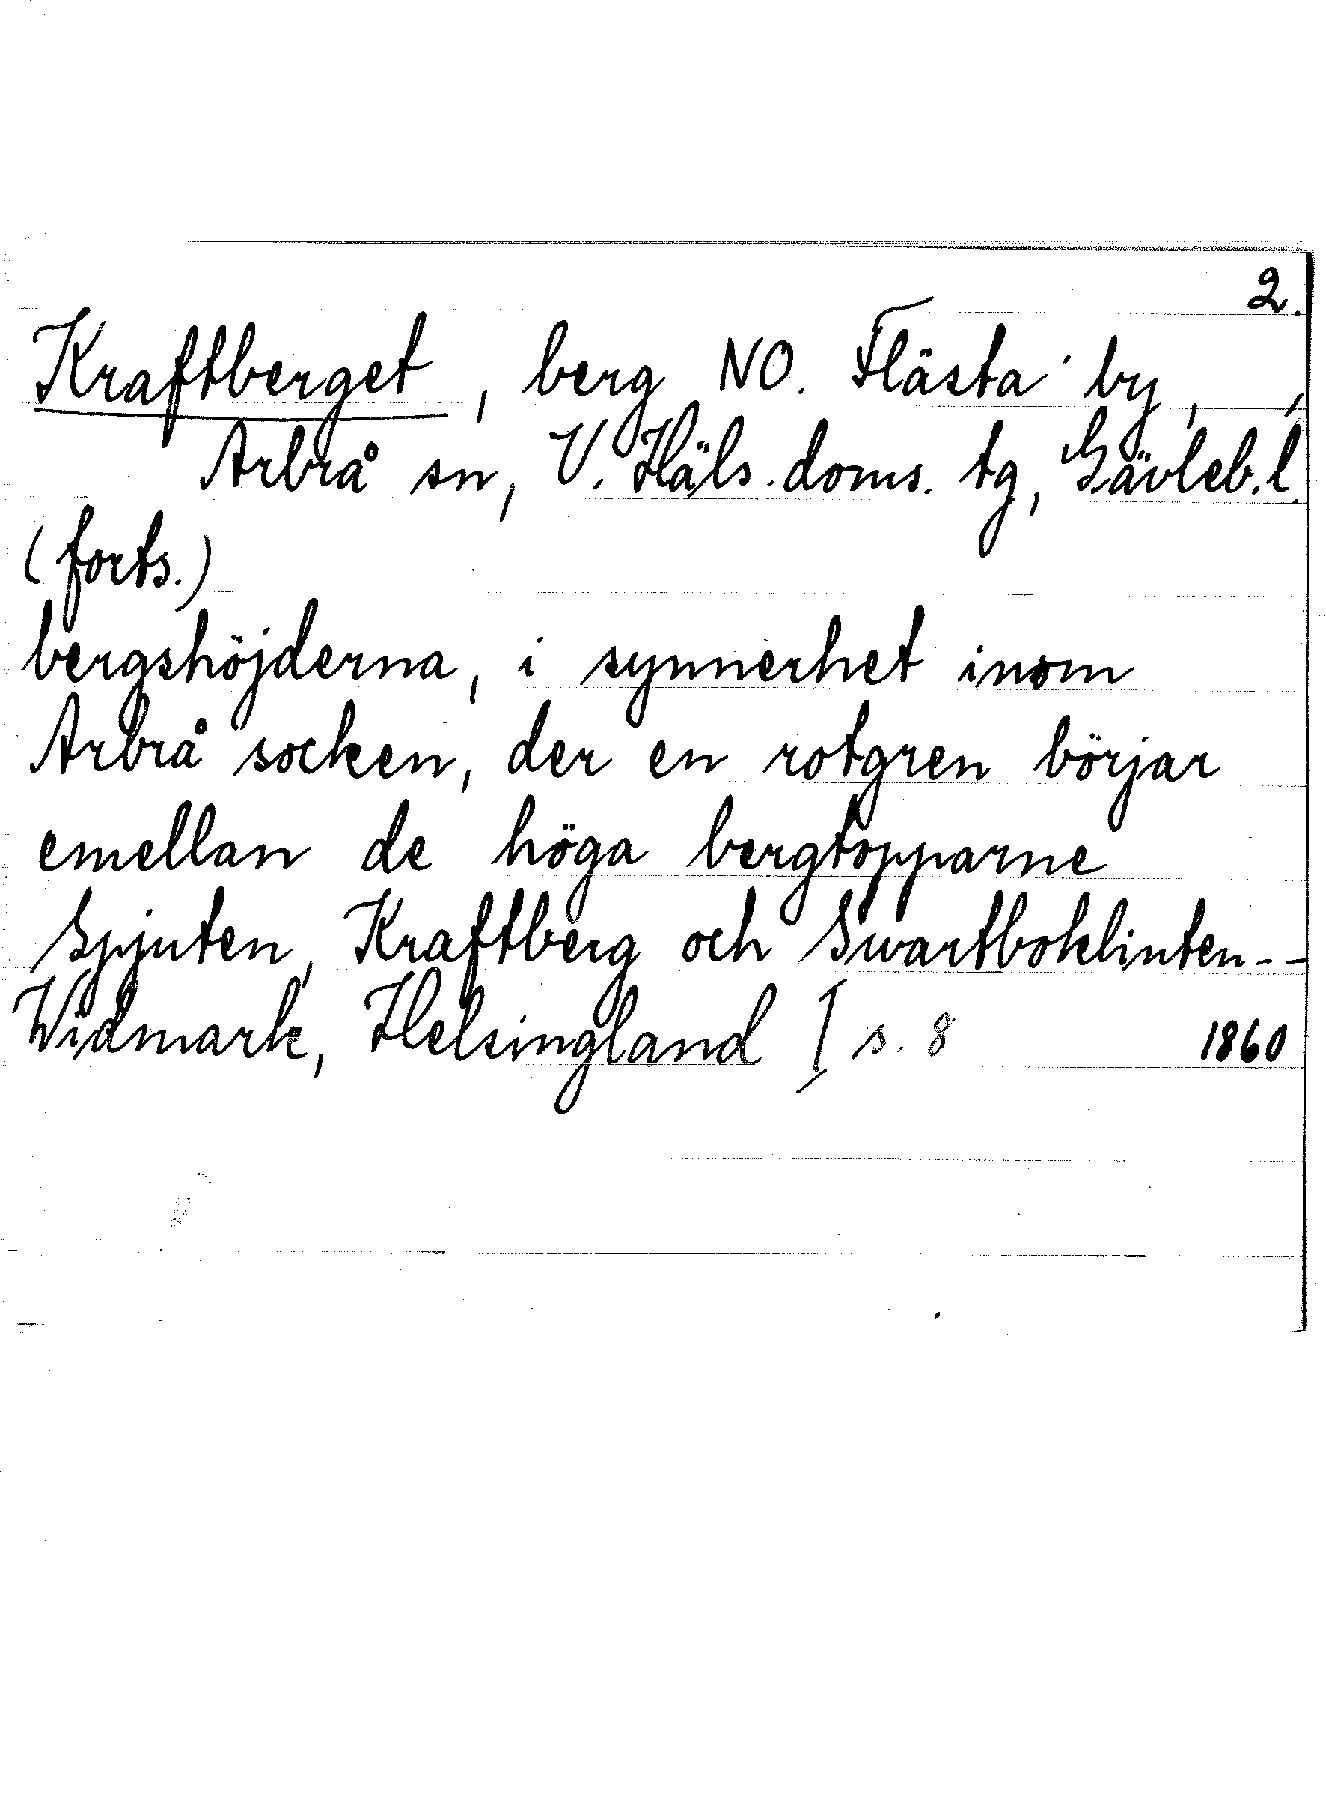 2.
Kraftberget, berg NO. Flästa by,
Arbrå sn, V. Häls. doms. tg, Gävleb. l.
(forts.)
bergshöjderna, i synnerhet inom
Arbrå socken, der en rotgren börjar
emellan de höga bergtopparne
Spjuten, Kraftberg och Swartboklinten--
Widmark, Helsingland I s. 8 1860